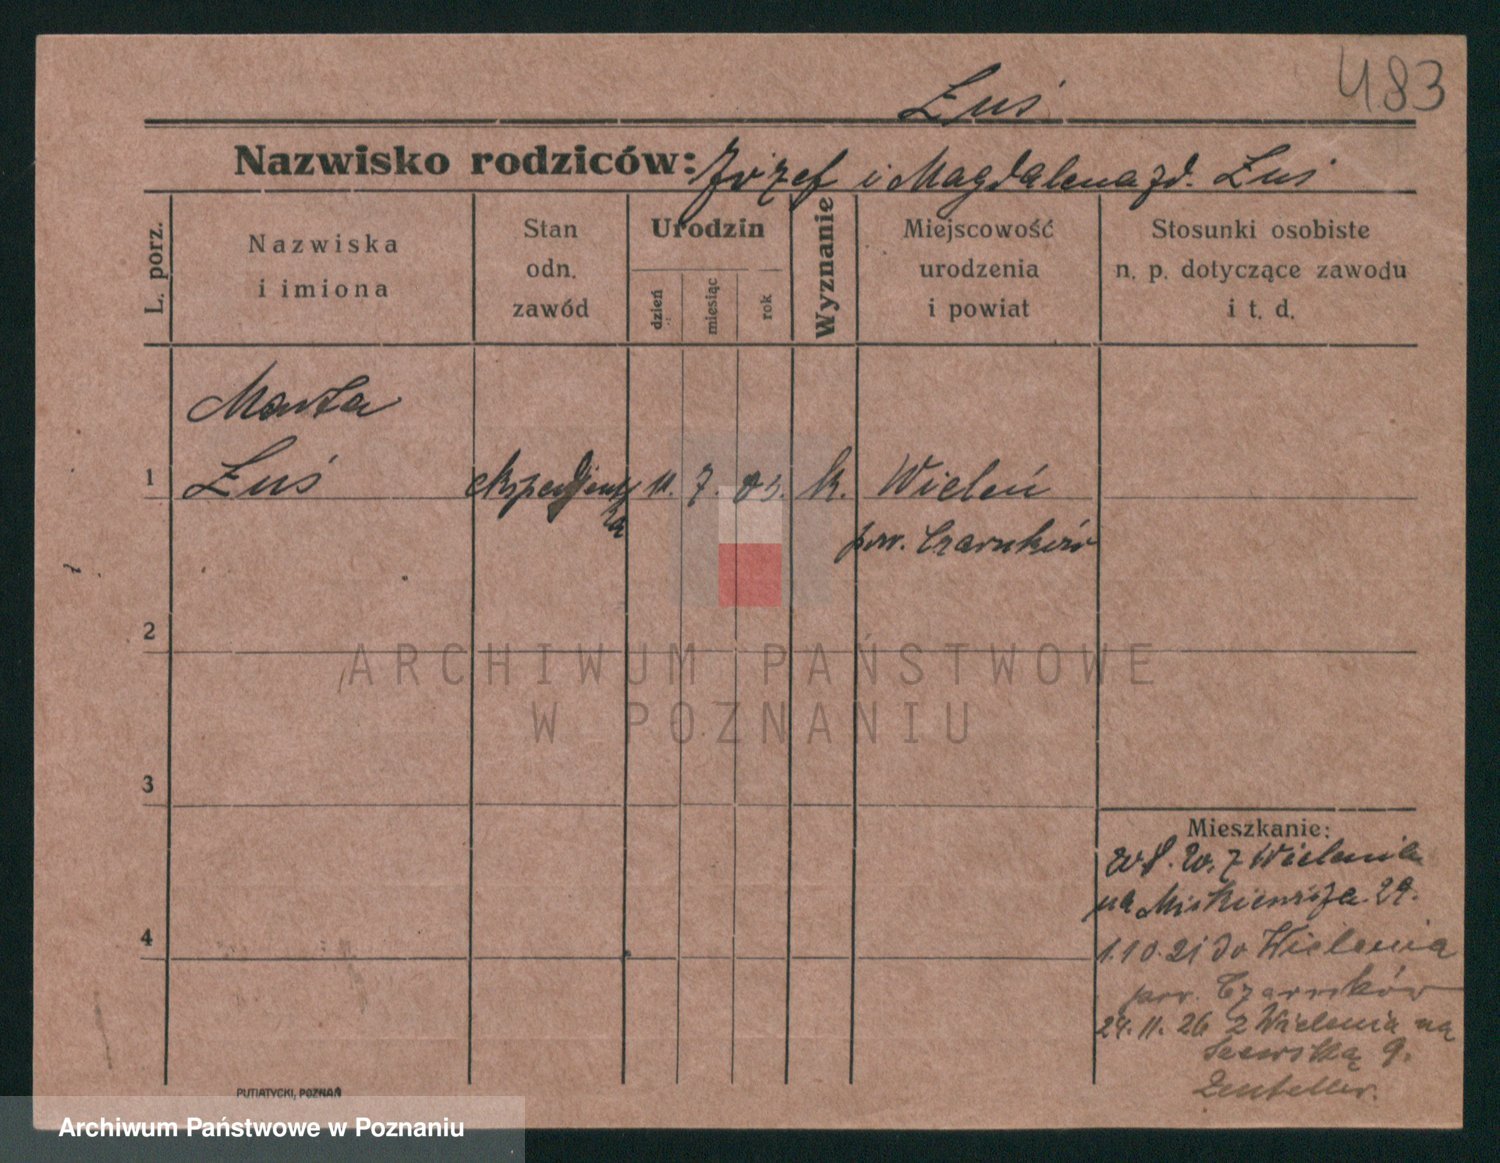 483
Żuś
Nazwisko rodziców: Józef i Magdalena zd. Żuś
L. porz.
Nazwiska
i imiona
Stan
odn.
zawód
Urodzin
dzień
miesiąc
rok
Wyznanie
Miejscowość
urodzenia
i powiat
Stosunki osobiste
n. p. dotyczące zawodu
i t. d.
Marta
1 Żuś ekspedjent 11. 7. 03. k. Wieleń
ka
pow. Czarnków
2
ARCHIWUM PAŃSTWOWE
W POZNANIU
3
Mieszkanie:
z Wielenia
na 29.
4
1.10.21 do Wielenia
pow. Czarnków
24. 11. 26 z Wielenia na
Szewską 9.
PUTIATYCKI, POZNAŃ
Archiwum Państwowe w Poznaniu